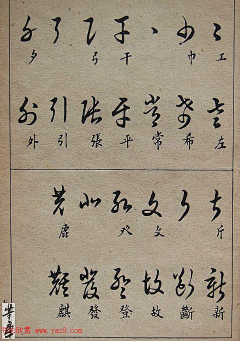 工 巾 干 弓 夕
左 希 常 平 張 引 外
斤 文 癶 鹿
新 斷 故 登 發 麒
www.yac8.com